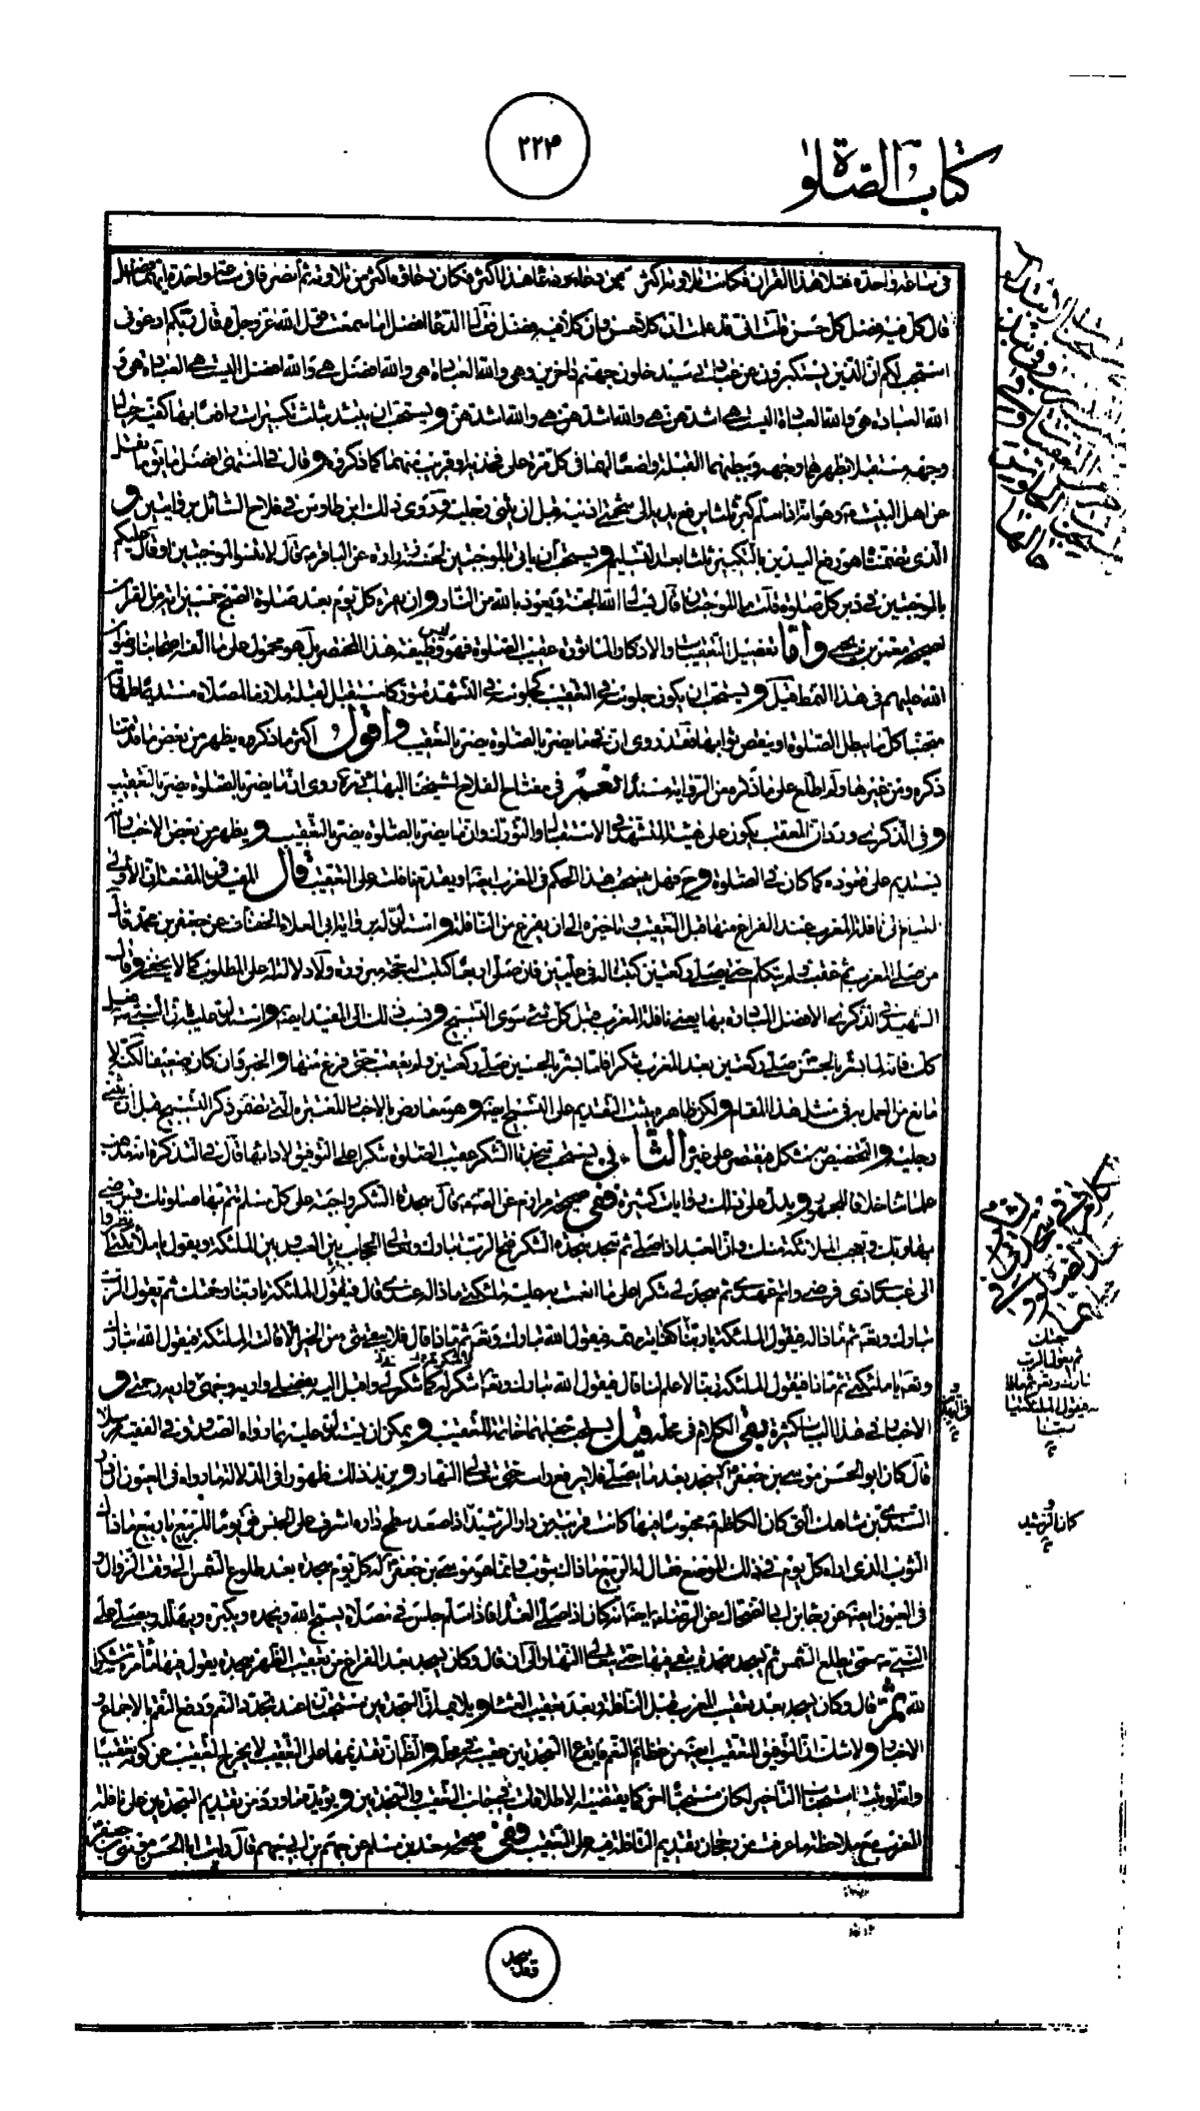 كتاب الصلوة
۲۲۳
فى ساعة واحدة فتلا هذا القران فكانت تلاوته اكثر من دعائه ودعا هذا اكثر فكان دعاؤه اكثر من تلاوته ثم انصرفا فى ساعة واحدة ايهما افضل
قال كل فيه فضل كل حسن قلت انى قد علمت ان كلا حسن وان كلا فيه فضل فقال الدعاء افضل اما سمعت قول الله عز وجل وقال ربكم ادعونى
استجب لكم ان الذين يستكبرون عن عبادتى سيدخلون جهنم داخرين وهى والله العبادة هى والله افضل هى والله افضل اليست هى العبادة هى و
الله العبادة هى والله العبادة اليست هى اشدهن هى والله اشدهن هى والله اشدهن ويستحب ان يبتدء بثلث تكبيرات رافعا بها كفيه حيال
وجهه مستقبلا بظهرهما وجهه وببطنهما القبلة واضعا لهما فى كل مرة على فخذيه او قريب منهما كما ذكروه وقال فى المنتهى افضل ما يقال ما نقل
عن اهل البيت وهو انه اذا سلم كبر ثلثا يرفع يديه الى شحمتى اذنيه قبل ان يثنى رجليه وروى ذلك ابن طاوس فى فلاح السائل
الذى تضمنتاه هو رفع اليدين بالتكبير ثلثا بعد التسليم ويستحب ان ياتى بالموجبتين لحسنة زرارة عن الباقر قال لا تنسوا الموجبتين وقال عليكم
بالموجبتين فى دبر كل صلوة قلت ما الموجبتان قال تسئل الله الجنة وتعوذ بالله من النار وان يقرء كل يوم بعد صلوة الصبح خمسين اية من القران
لصحيحة معمر بن واما تفصيل التعقيبات والاذكار الماثورة عقيب الصلوة فهو ليس وظيفة هذا المختصر بل هو محول على ما الفه اصحابنا رضوان
الله عليهم فى هذا القبيل ويستحب ان يكون جلوسه فى التعقيب كجلوسه فى التشهد متوركا مستقبل القبلة ملازما لمصلاه مستديما طهارته
مجتنبا كل ما يبطل الصلوة او ينقص ثوابها فقد روى ان ما يضر بالصلوة يضر بالتعقيب واقول اكثر ما ذكروه يظهر من بعض ما قدمنا
ذكره ومن غيرها ولم اطلع على ما ذكره من الرواية مسندا نعم فى مفتاح الفلاح لشيخنا البهائى روى ان ما يضر بالصلوة يضر بالتعقيب
وفى الذكرى ورد ان المعقب يكون على هيئة المتشهد فى الاستقبال والتورك وان ما يضر بالصلوة يضر بالتعقيب ويظهر من بعض الاخبار ان
يستديم على وضوئه كما كان فى الصلوة وح فهل يستحب هذا الحكم فى المغرب ايضا او يقدم نافلته على التعقيب قال المفيد فى المقنعة ان الاولى
القيام الى نافلة المغرب عند الفراغ منها قبل التعقيب وتاخيره الى ان يفرغ من النافلة واستدل له برواية ابى العلاء الخفاف عن جعفر بن محمد قال
من صلى المغرب ثم عقب ولم يتكلم حتى يصلى ركعتين كتبتا له فى عليين فان صلى اربعا كتبت له حجة مبرورة ولا دلالة له على المطلوب كما لا يخفى وقال
الشهيد فى الذكرى الافضل المبادرة بها يعنى نافلة المغرب قبل كل شىء سوى التسبيح ونسب ذلك الى المفيد ايضا واستدل عليه بان النبى فعلها
كذلك فانه لما بشر بالحسن صلى ركعتين بعد المغرب شكرا فلما بشر بالحسين صلى ركعتين ولم يعقب حتى فرغ منها والخبر وان كان ضعيفا لكن لا
مانع من العمل به فى مثل هذا المقام ولكن ظاهره يثبت التقديم على التسبيح ايضا وهو معارض بالاخبار المعتبرة التى تضمن ذكر التسبيح قبل ان يثنى
رجليه والتخصيص مشكل الثانى يستحب سجدتا الشكر عقيب الصلوة شكرا على التوفيق لادائها قال فى التذكرة انه مذهب
علمائنا خلافا للجمهور ويدل على ذلك روايات كثيرة ففى صحيحة مرازم عن الصادق قال سجدة الشكر واجبة على كل مسلم تتم بها صلوتك وترضى
بها ربك وتعجب الملائكة منك وان العبد اذا صلى ثم سجد سجدة الشكر فتح الرب تبارك وتعالى الحجاب بين العبد وبين الملئكة ويقول يا ملائكتى انظروا
الى عبدى ادى فرضى واتم عهدى ثم سجد لى شكرا على ما انعمت به عليه ملئكتى ماذا له عندى قال فيقول الملئكة يا ربنا رحمتك ثم يقول الرب
تبارك وتع ثم ماذا له فيقول الملئكة يا ربنا كفاية مهمه فيقول الله تبارك وتع ثم ماذا قال فلا يبقى شىء من الخير الا قالته الملئكة فيقول الله تبارك
وتع يا ملئكتى ثم ماذا فيقول الملئكة ربنا لا علم لنا قال فيقول الله تبارك وتع اشكر له كما شكر لى واقبل اليه بفضلى واريه وجهى واريه رحمتى و
الاخبار فى هذا الباب كثيرة بقى الكلام فى محله قيل يستحب جعلها خاتمة التعقيب ويمكن ان يستدل عليه بما رواه الصدوق فى الفقيه مرسلا
قال كان ابو الحسن موسى بن جعفر يسجد بعد ما يصلى فلا يرفع راسه حتى يتعالى النهار ويزيد ذلك ظهورا فى الدلالة ما رواه فى العيون ان دار
السندى بن شاهك التى كان الكاظم محبوسا فيها كانت قريبة من دار الرشيد اذا صعد سطح داره اشرف على الحبس فقال يوما للربيع يا ربيع ما ذاك
الثوب الذى اراه كل يوم فى ذلك الموضع فقال له الربيع ما ذاك بثوب وانما هو موسى بن جعفر له كل يوم سجدة بعد طلوع الشمس الى وقت الزوال و
فى العيون ايضا عن رجاء بن ابى الضحاك عن الرضا انه كان اذا صلى الغداة فاذا سلم جلس فى مصلاه يسبح الله ويحمده ويكبره ويهلله ويصلى على
النبى حتى يطلع الشمس ثم يسجد سجدة يبقى فيها حتى يتعالى النهار الى ان قال وكان يسجد بعد الفراغ من تعقيب الظهر سجدة يقول فيها مائة مرة شكرا
لله ثم قال وكان يسجد بعد تعقيب المغرب قبل النافلة وبعد تعقيب العشاء ان السجدتين مستحبتان عند تجدد النعم ودفع النقم بالاجماع و
الاخبار ولا شك ان التوفيق للتعقيب ايضا من عظائم النعم فايقاع السجدتين عقيبه فى محله والظان تقديمها على التعقيب لا يخرج التعقيب عن كونه تعقيبا
استحباب التاخير لكان مستحبا اخر كما يقتضيه الاطلاقات فى جانب التعقيب والسجدتين ويؤيده ما ورد من تقديم السجدتين على نافلة
المغرب مع ملاحظة ما عرفت من رجحان تقديم النافلة فيه على التعقيب ففى صحيحة سعد بن مسلم عن جهم بن ابى جهم قال رايت ابا الحسن موسى بن جعفر
ثم يقول الرب
كان الرشيد
سجد